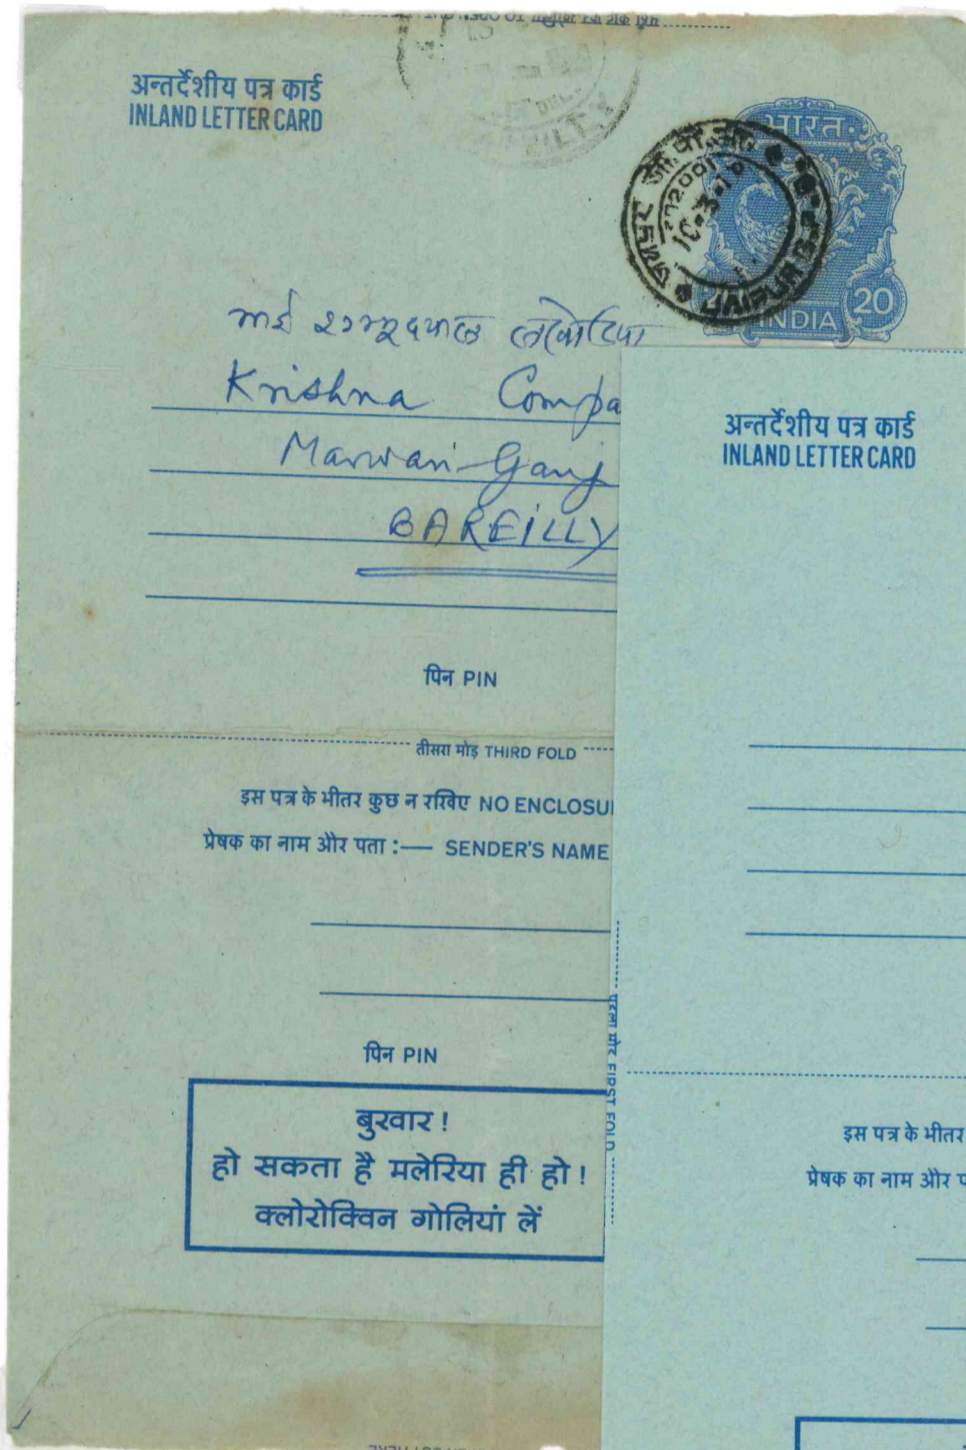 अन्तर्देशीय पत्र कार्ड
INLAND LETTER CARD
भारत
INDIA
20
272001
JAIPUR
Krishna Compa
Marwari Ganj
BAREILLY
पिन PIN
तीसरा मोड़ THIRD FOLD
इस पत्र के भीतर कुछ न रखिए NO ENCLOSU
प्रेषक का नाम और पता :— SENDER'S NAME
पिन PIN
बुखार !
हो सकता है मलेरिया ही हो !
क्लोरोक्विन गोलियां लें
अन्तर्देशीय पत्र कार्ड
INLAND LETTER CARD
पहला मोड़ FIRST FOLD
इस पत्र के भीतर
प्रेषक का नाम और प